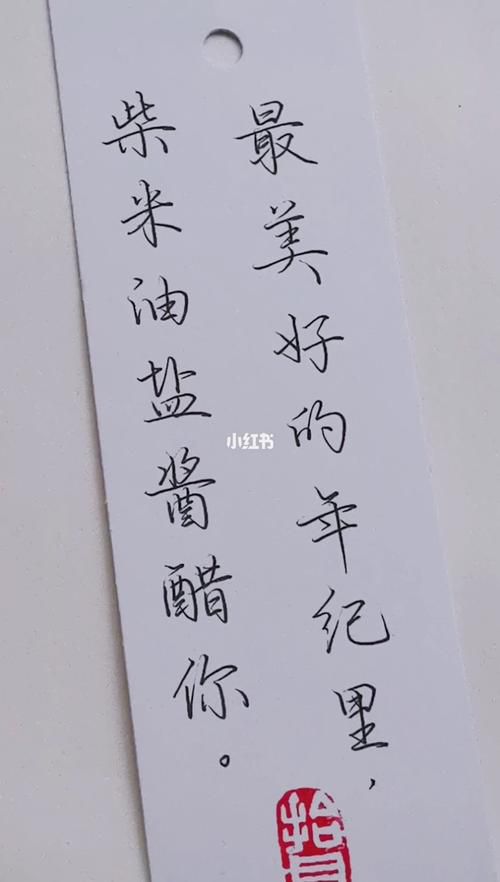 最美好的年纪里，
柴米油盐酱醋你。
小红书